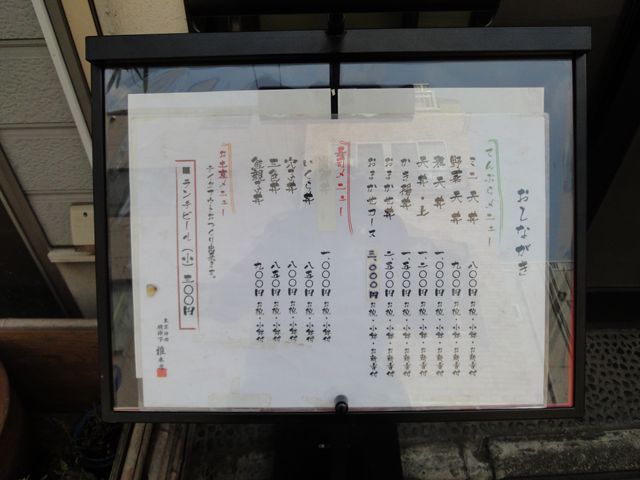 おしながき
てんぷらメニュー
ミニ天丼 八〇〇円 お椀・小鉢・お新香付
野菜天丼 九〇〇円 お椀・小鉢・お新香付
穂天丼 一、〇〇〇円 お椀・小鉢・お新香付
天丼・上 一、二〇〇円 お椀・小鉢・お新香付
かき揚丼 一、五〇〇円 お椀・小鉢・お新香付
おまかせ丼 二、五〇〇円 お椀・小鉢・お新香付
おまかせコース 三、〇〇〇円 お椀・小鉢・お新香付
寿司メニュー
一、〇〇〇円 お椀・小鉢付
いくら丼 八五〇円 お椀・小鉢付
穴子丼 八〇〇円 お椀・小鉢付
三色丼 八五〇円 お椀・小鉢付
能親子丼 九〇〇円 お椀・小鉢付
お土産メニュー
テイクアウト・おつくり出来ます。
■ランチビール(小)三〇〇円